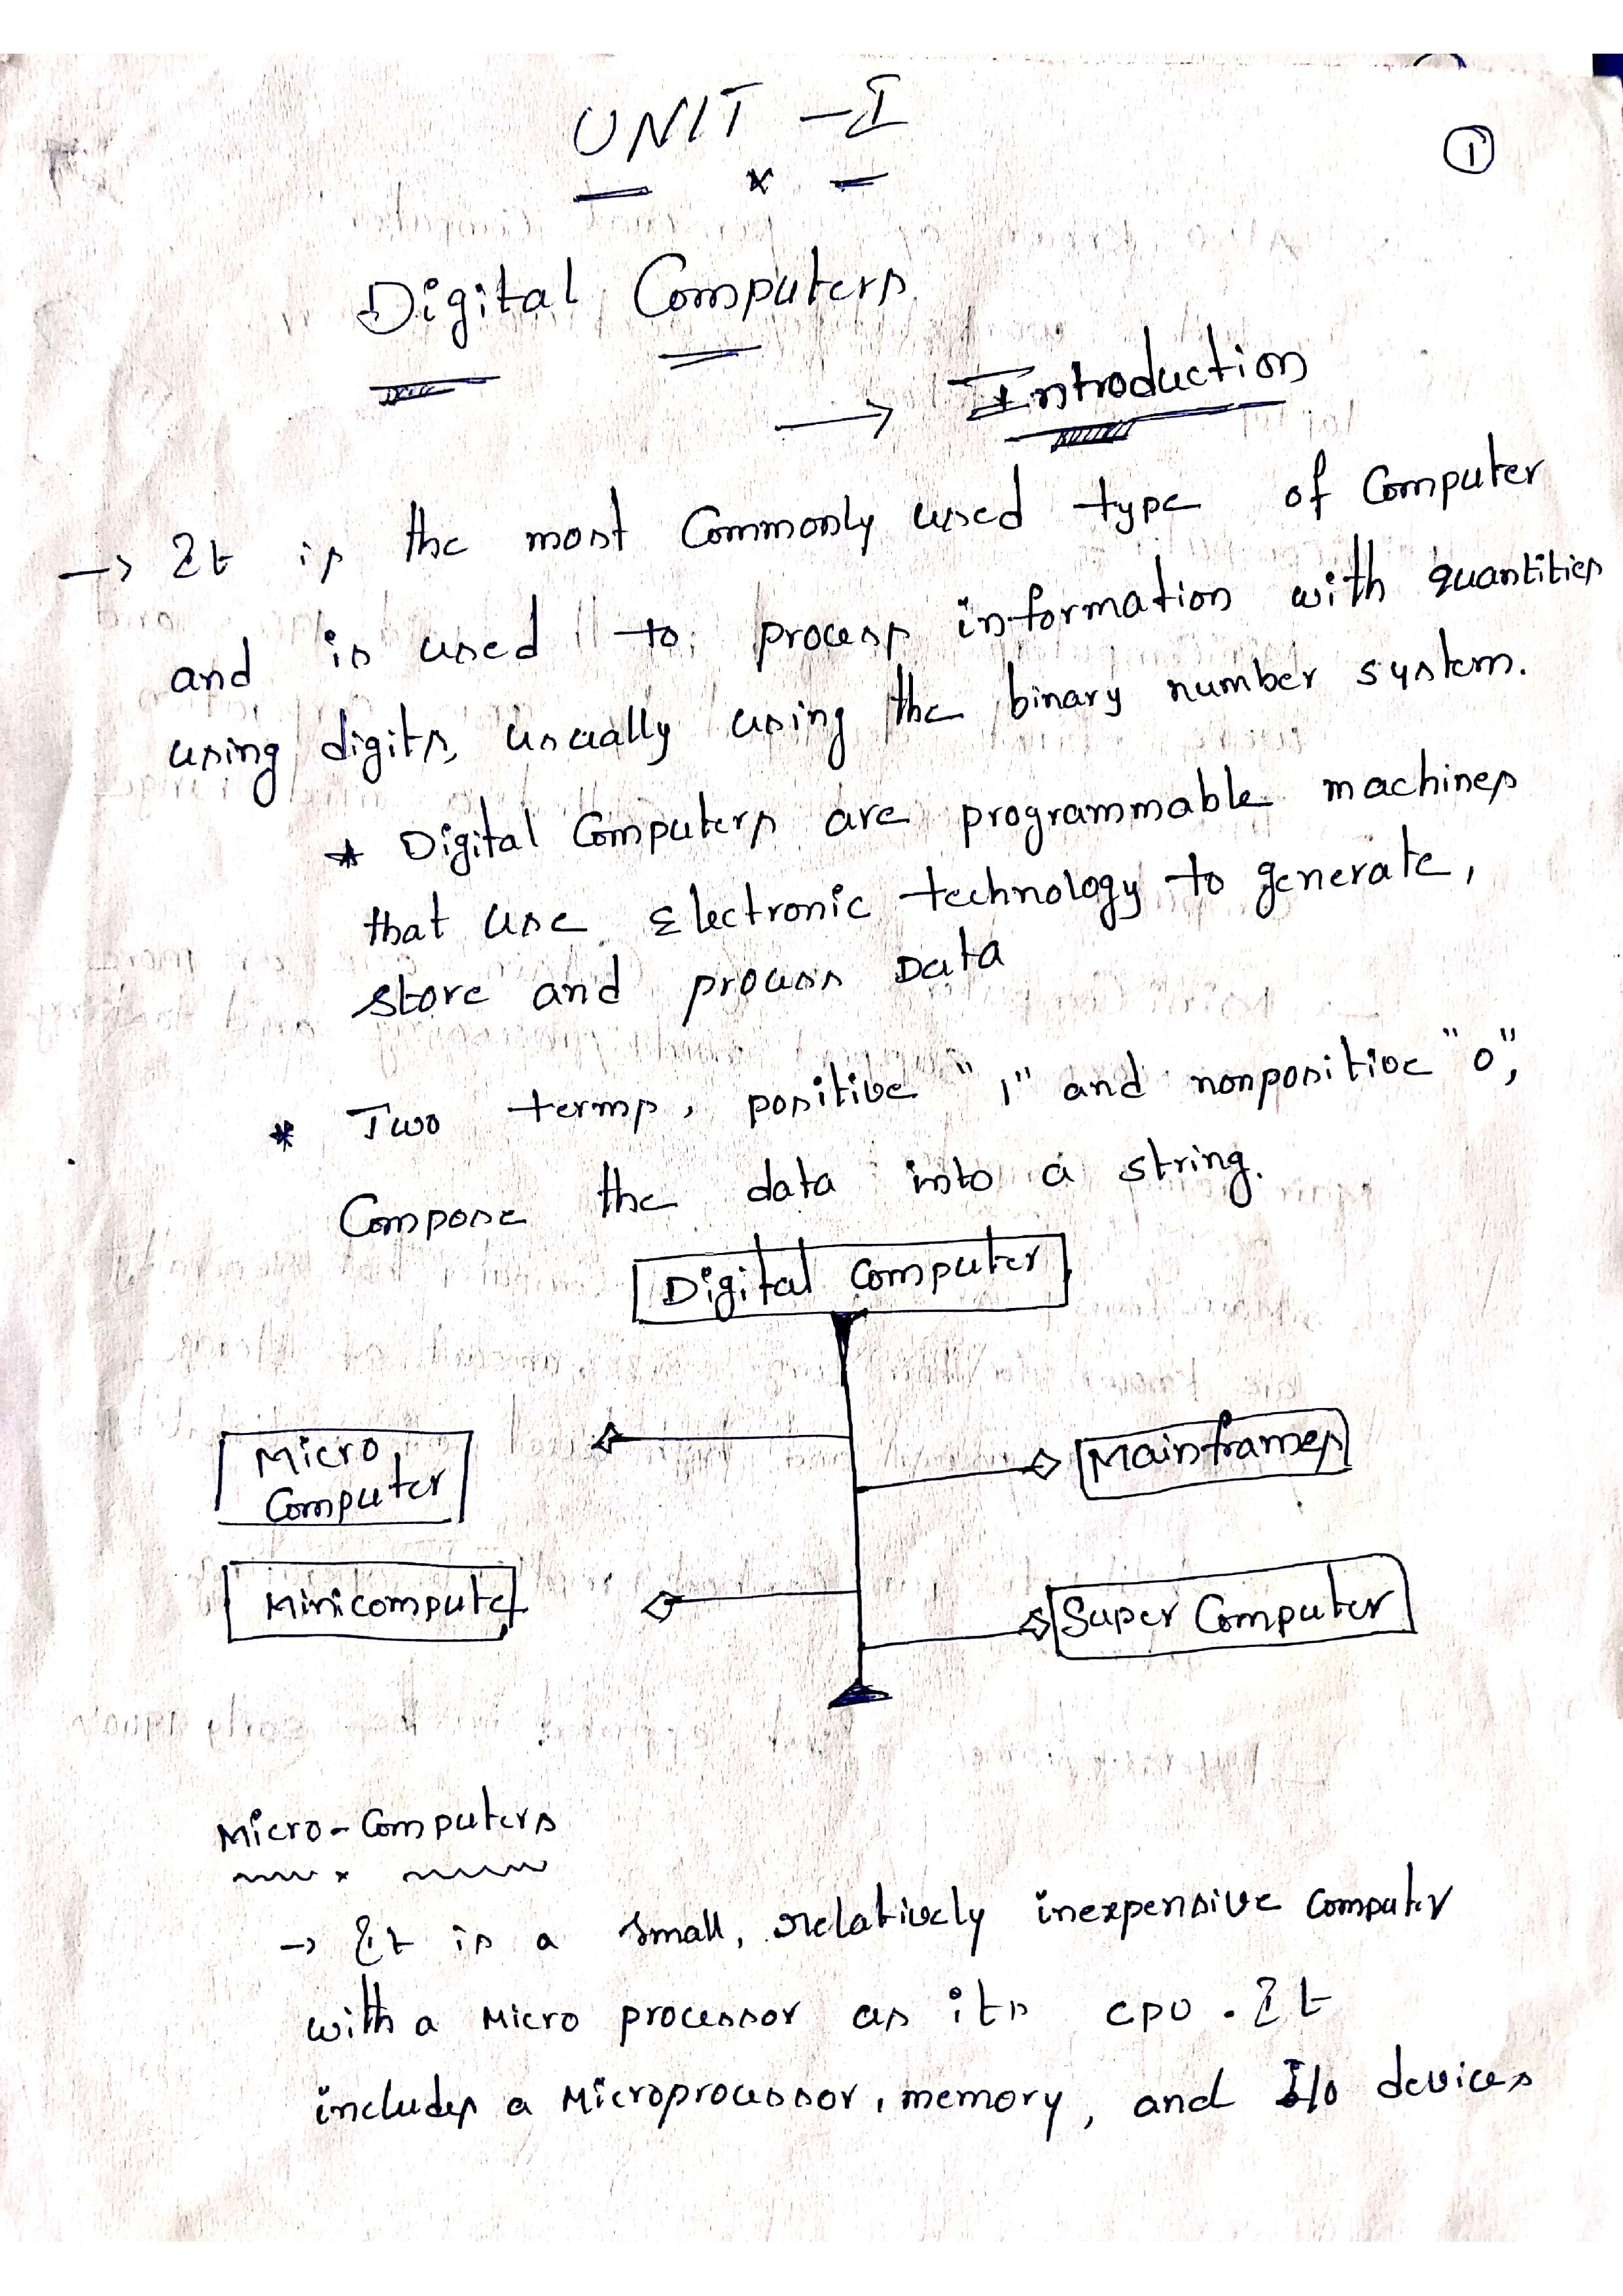 UNIT - I
①
Digital Computers
→ Introduction
→ It is the most Commonly used type of Computer
and is used to process information with quantities
using digits, usually using the binary number system.
* Digital Computers are programmable machines
that use Electronic technology to generate,
store and process Data
* Two terms, positive "1" and nonpositive "0",
Compose the data into a string.
Digital Computer
Micro
Computer
Mainframes
Minicomputer
Super Computer
Micro-Computers
→ It is a small, relatively inexpensive computer
with a Micro processor as its CPU. It
includes a Microprocessor, memory, and I/O devices